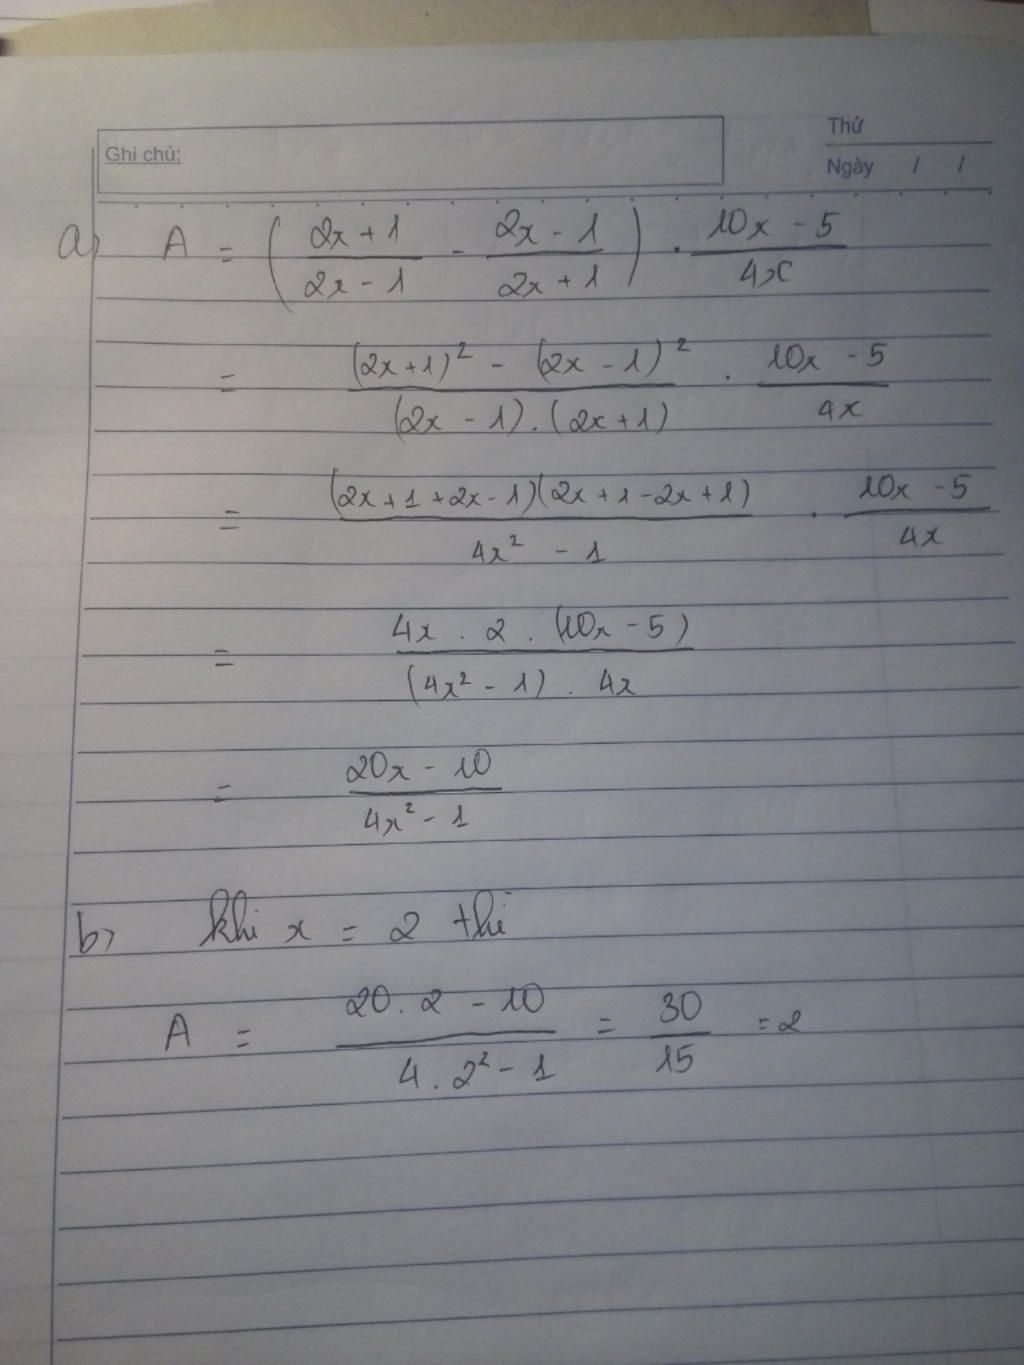 Thứ
Ghi chú:
Ngày / /
a) A = ( (2x + 1)/(2x - 1) - (2x - 1)/(2x + 1) ) . (10x - 5)/(4x)
= ((2x + 1)² - (2x - 1)²)/((2x - 1) . (2x + 1)) . (10x - 5)/(4x)
= ((2x + 1 + 2x - 1)(2x + 1 - 2x + 1))/(4x² - 1) . (10x - 5)/(4x)
= (4x . 2 . (10x - 5))/((4x² - 1) . 4x)
= (20x - 10)/(4x² - 1)
b) khi x = 2 thì
A = (20 . 2 - 10)/(4 . 2² - 1) = 30/15 = 2